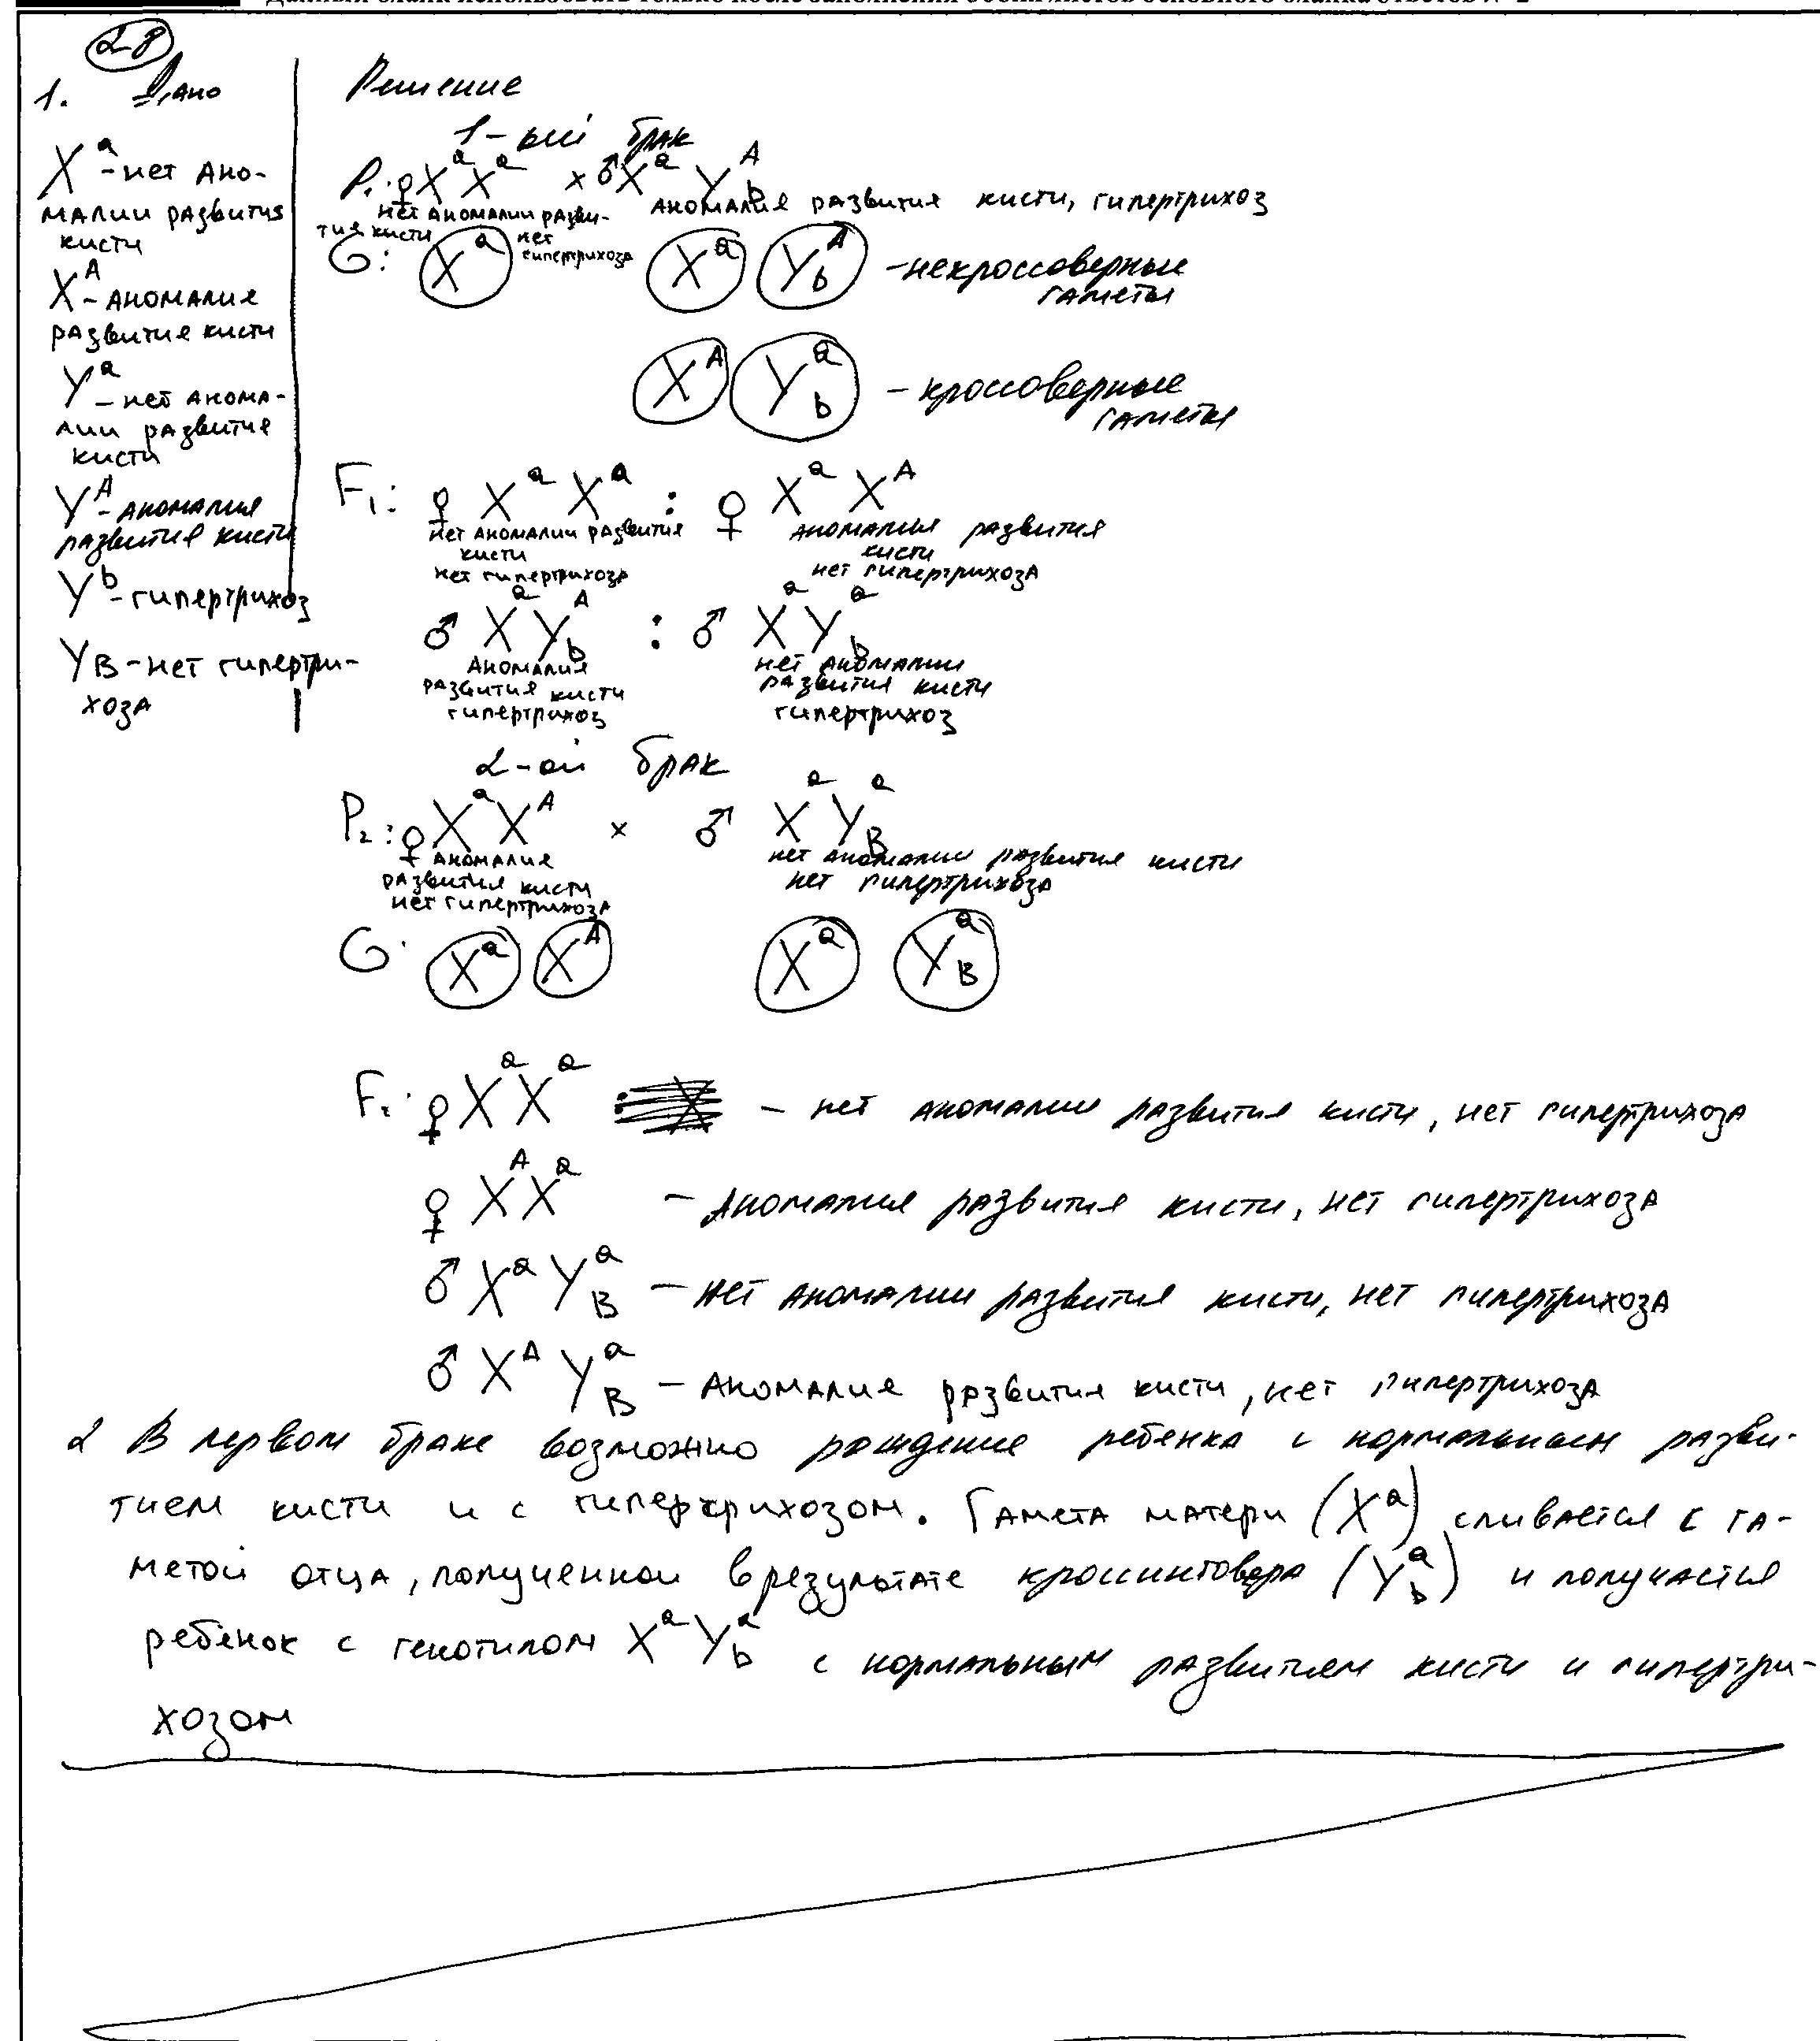 Данный бланк использовать только после заполнения обеих листов основного бланка ответов № 2
28
1. Дано
X^a - нет ано-
малии развития
кисти
X^A - аномалия
развития кисти
Y^a - нет анома-
лии развития
кисти
Y^A - аномалия
развития кисти
Y^b - гипертрихоз
Y_B - нет гипертри-
хоза
Решение
1-ый брак
P1: ♀ X^a X^a × ♂ X^a Y^A_b
нет аномалии разви-
тия кисти
нет
гипертрихоза
аномалия развития кисти, гипертрихоз
G: X^a X^a Y^A_b - некроссоверные
гаметы
X^A Y^a_b - кроссоверные
гаметы
F1: ♀ X^a X^a : ♀ X^a X^A
нет аномалии развития
кисти
нет гипертрихоза
аномалия развития
кисти
нет гипертрихоза
♂ X^a Y^A_b : ♂ X^a Y^a_b
аномалия
развития кисти
гипертрихоз
нет аномалии
развития кисти
гипертрихоз
2-ой брак
P2: ♀ X^a X^A × ♂ X^a Y^a_B
аномалия
развития кисти
нет гипертрихоза
нет аномалии развития кисти
нет гипертрихоза
G: X^a X^A X^a Y^a_B
F2: ♀ X^a X^a - нет аномалии развития кисти, нет гипертрихоза
♀ X^A X^a - Аномалия развития кисти, нет гипертрихоза
♂ X^a Y^a_B - нет аномалии развития кисти, нет гипертрихоза
♂ X^A Y^a_B - Аномалия развития кисти, нет гипертрихоза
2 В первом браке возможно рождение ребенка с нормальным разви-
тием кисти и с гипертрихозом. Гамета матери (X^a) сливается с га-
метой отца, полученной в результате кроссинговера (Y^a_b) и получается
ребенок с генотипом X^a Y^a_b с нормальным развитием кисти и гипертри-
хозом